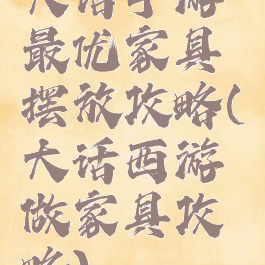 大话手游
最优家具
摆放攻略(
大话西游
做家具攻
略)